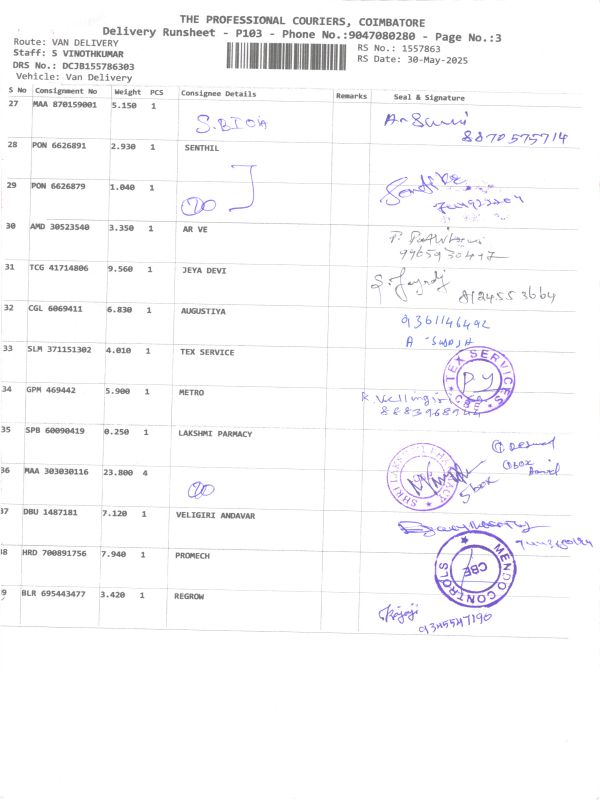 THE PROFESSIONAL COURIERS, COIMBATORE
Delivery Runsheet - P103 - Phone No.:9047080280 - Page No.:3
Route: VAN DELIVERY
Staff: S VINOTHKUMAR
DRS No.: DCJB155786303
Vehicle: Van Delivery
RS No.: 1557863
RS Date: 30-May-2025
S No Consignment No Weight PCS Consignee Details Remarks Seal & Signature
27 MAA 870159001 5.150 1
8870575714
28 PON 6626891 2.930 1 SENTHIL
29 PON 6626879 1.040 1
30 AMD 30523540 3.350 1 AR VE
31 TCG 41714806 9.560 1 JEYA DEVI
8124553664
32 CGL 6069411 6.830 1 AUGUSTIYA
9361146492
33 SLM 371151302 4.010 1 TEX SERVICE
TEX SERVICES CBE
34 GPM 469442 5.900 1 METRO
35 SPB 60090419 0.250 1 LAKSHMI PARMACY
SHRI LAKSHMI PHARMACY
5 box
36 MAA 303030116 23.800 4
37 DBU 1487181 7.120 1 VELIGIRI ANDAVAR
38 HRD 700891756 7.940 1 PROMECH
MENDO CONTROLS CBE
9 BLR 695443477 3.420 1 REGROW
9345547190